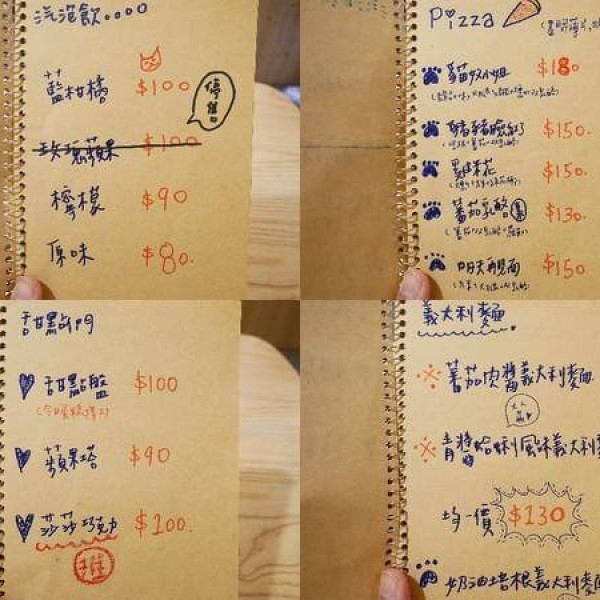 汽泡飲....
藍柑橘 $100
停售
玫瑰蘋果 $100
檸檬 $90
原味 $80.
Pizza
貓奴小姐 $180
豬豬臉紅了 $150.
雞米花 $150.
蕃茄乳酪 素 $130.
明天再見面 $150
甜點門
甜點盤 $100
蘋果塔 $90
莎莎巧克力 $100.
推
義大利麵.
蕃茄肉醬義大利麵.
人氣
青醬蛤蜊風味義大利
均一價 $130
奶油培根義大利麵